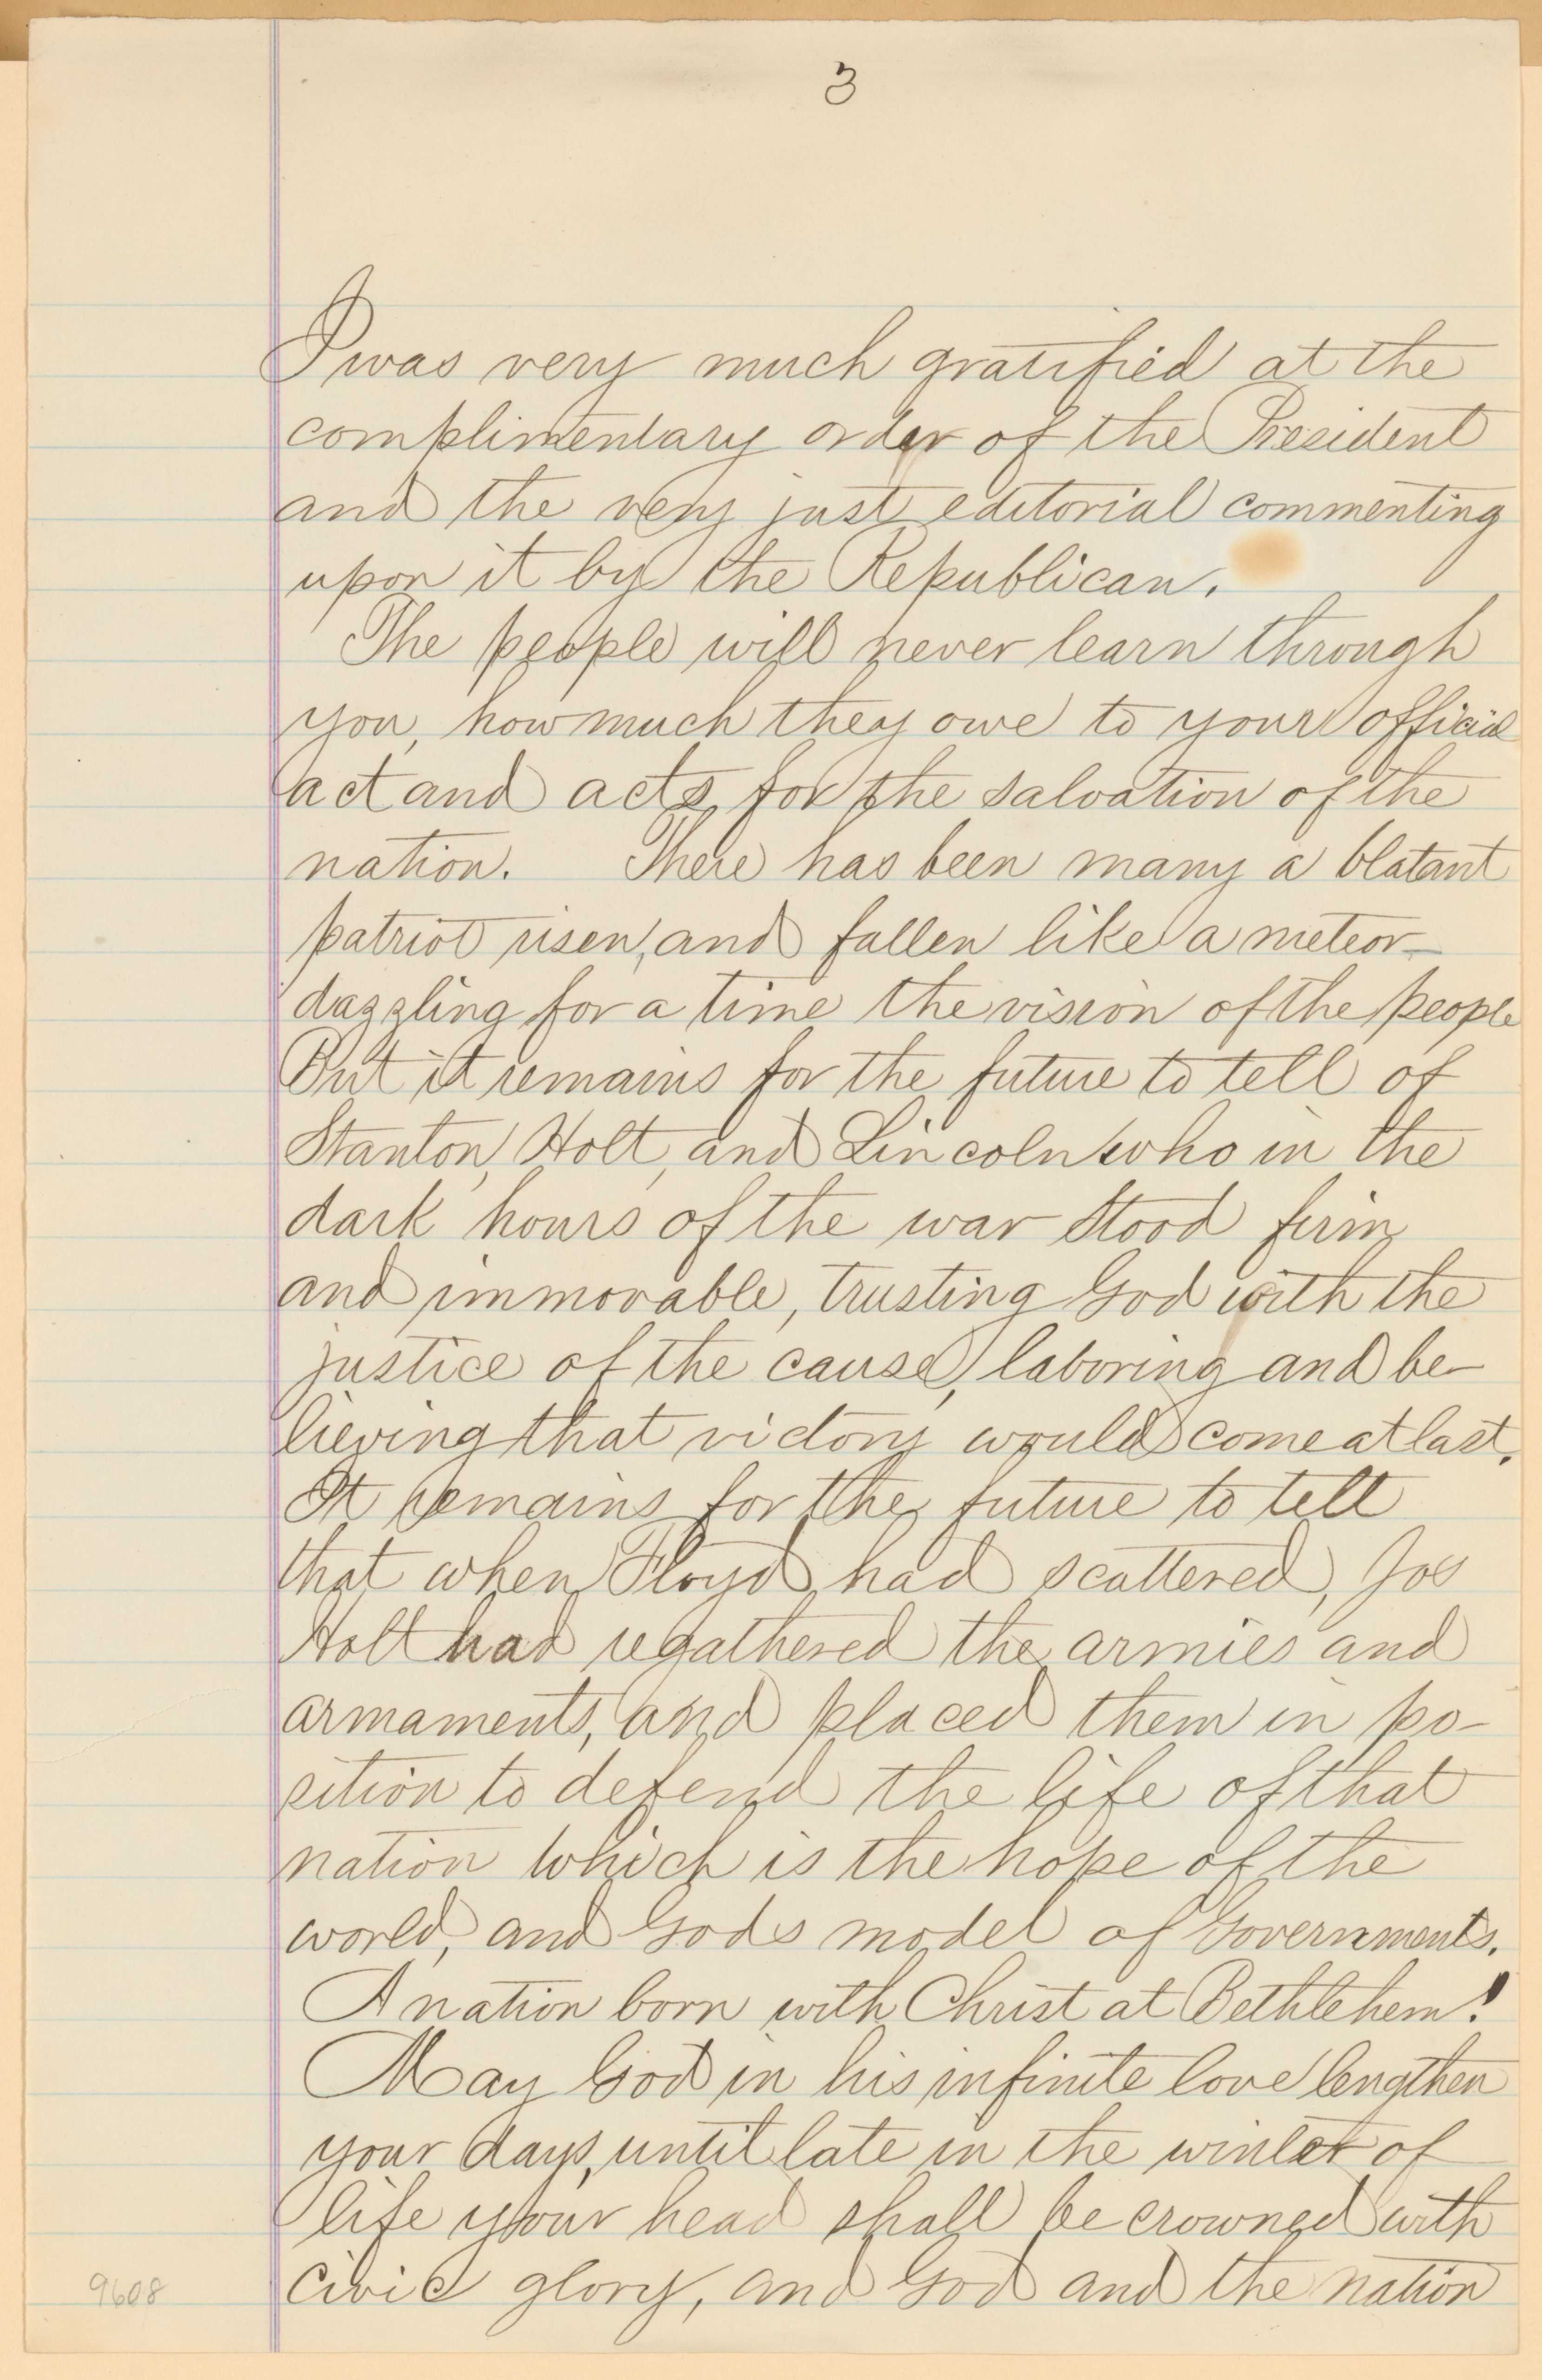 3
I was very much gratified at the
complimentary order of the President
and the very just editorial commenting
upon it by the Republican.
The people will never learn through
you, how much they owe to your official
act and acts for the salvation of the
nation. There has been many a blatant
patriot risen, and fallen like a meteor—
dazzling for a time the vision of the people
But it remains for the future to tell of
Stanton, Holt, and Lincoln who in the
dark hours of the war stood firm
and immovable, trusting God with the
justice of the cause, laboring and be-
lieving that victory would come at last.
It remains for the future to tell
that when Floyd had scattered, Jos
Holt had regathered the armies and
armaments, and placed them in po-
sition to defend the life of that
nation which is the hope of the
world, and Gods model of Governments.
A nation born with Christ at Bethlehem!
May God in his infinite love lengthen
your days, until late in the winter of
life your head shall be crowned with
civic glory, and God and the nation
9608